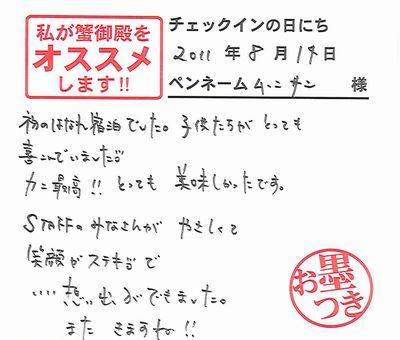 私が蟹御殿を
オススメ
します!!
チェックインの日にち
2011 年 8 月 14 日
ペンネーム ムーニーサン 様
初のはなれ宿泊でした。子供たちが とっても
喜こんでいました♪
カニ最高!! とっても 美味しかったです。
STAFFのみなさんが やさしくて
笑顔がステキで
‥‥想い出ができました。
また きますね!!
お墨つき